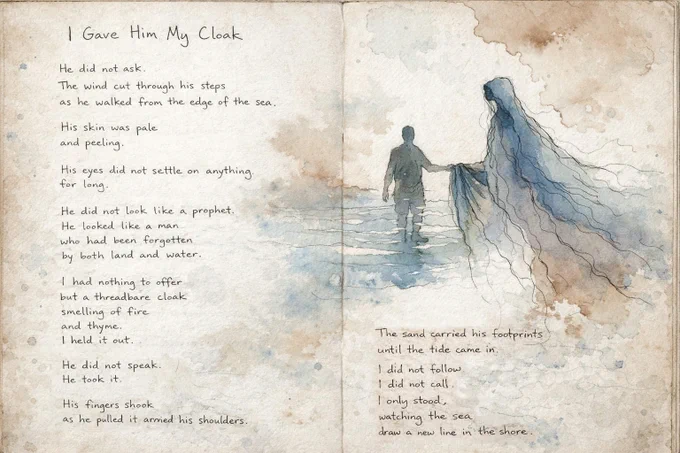 I Gave Him My Cloak
He did not ask.
The wind cut through his steps
as he walked from the edge of the sea.
His skin was pale
and peeling.
His eyes did not settle on anything
for long.
He did not look like a prophet.
He looked like a man
who had been forgotten
by both land and water.
I had nothing to offer
but a threadbare cloak
smelling of fire
and thyme.
I held it out.
He did not speak.
He took it.
His fingers shook
as he pulled it armed his shoulders.
The sand carried his footprints
until the tide came in.
I did not follow
I did not call.
I only stood,
watching the sea
draw a new line in the shore.